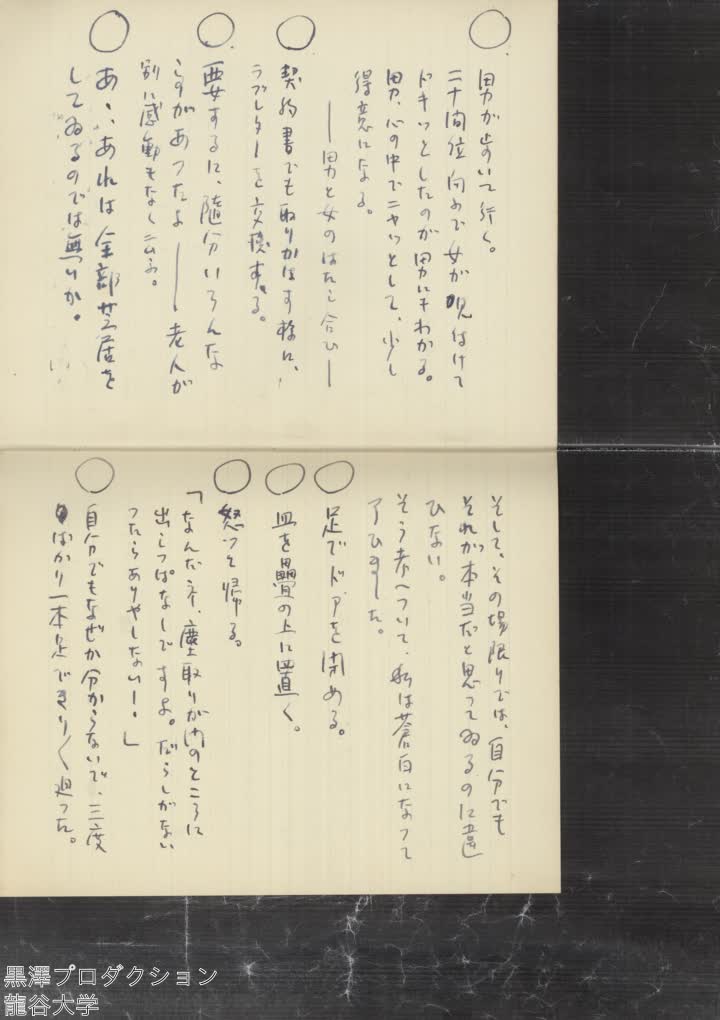 男が歩いて行く。
二十間位向ふで女が呪はけて
ドキッとしたのが男にもわかる。
男、心の中でニヤッとして、少し
得意になる。
――男と女のはたし合ひ――
契約書でも取りかはす様に、
ラブレターを交換する。
要するに、随分いろんな
ことがあつたよ――老人が
別に感動もなく云ふ。
あゝ、あれは全部芝居を
してゐるのでは無いか。
そして、その場限りでは、自分でも
それが本当だと思つてゐるのに違
ひない。
そう考へついて、私は蒼白になつて
了ひました。
足でドアを閉める。
皿を畳の上に置く。
怒つて帰る。
「なんだネ、塵取りが門のところに
出しつぱなしですよ。だらしがない
つたらありやしない！」
自分でもなぜか分からないで、三度
ばかり一本足できり〱廻つた。
黒澤プロダクション
龍谷大学